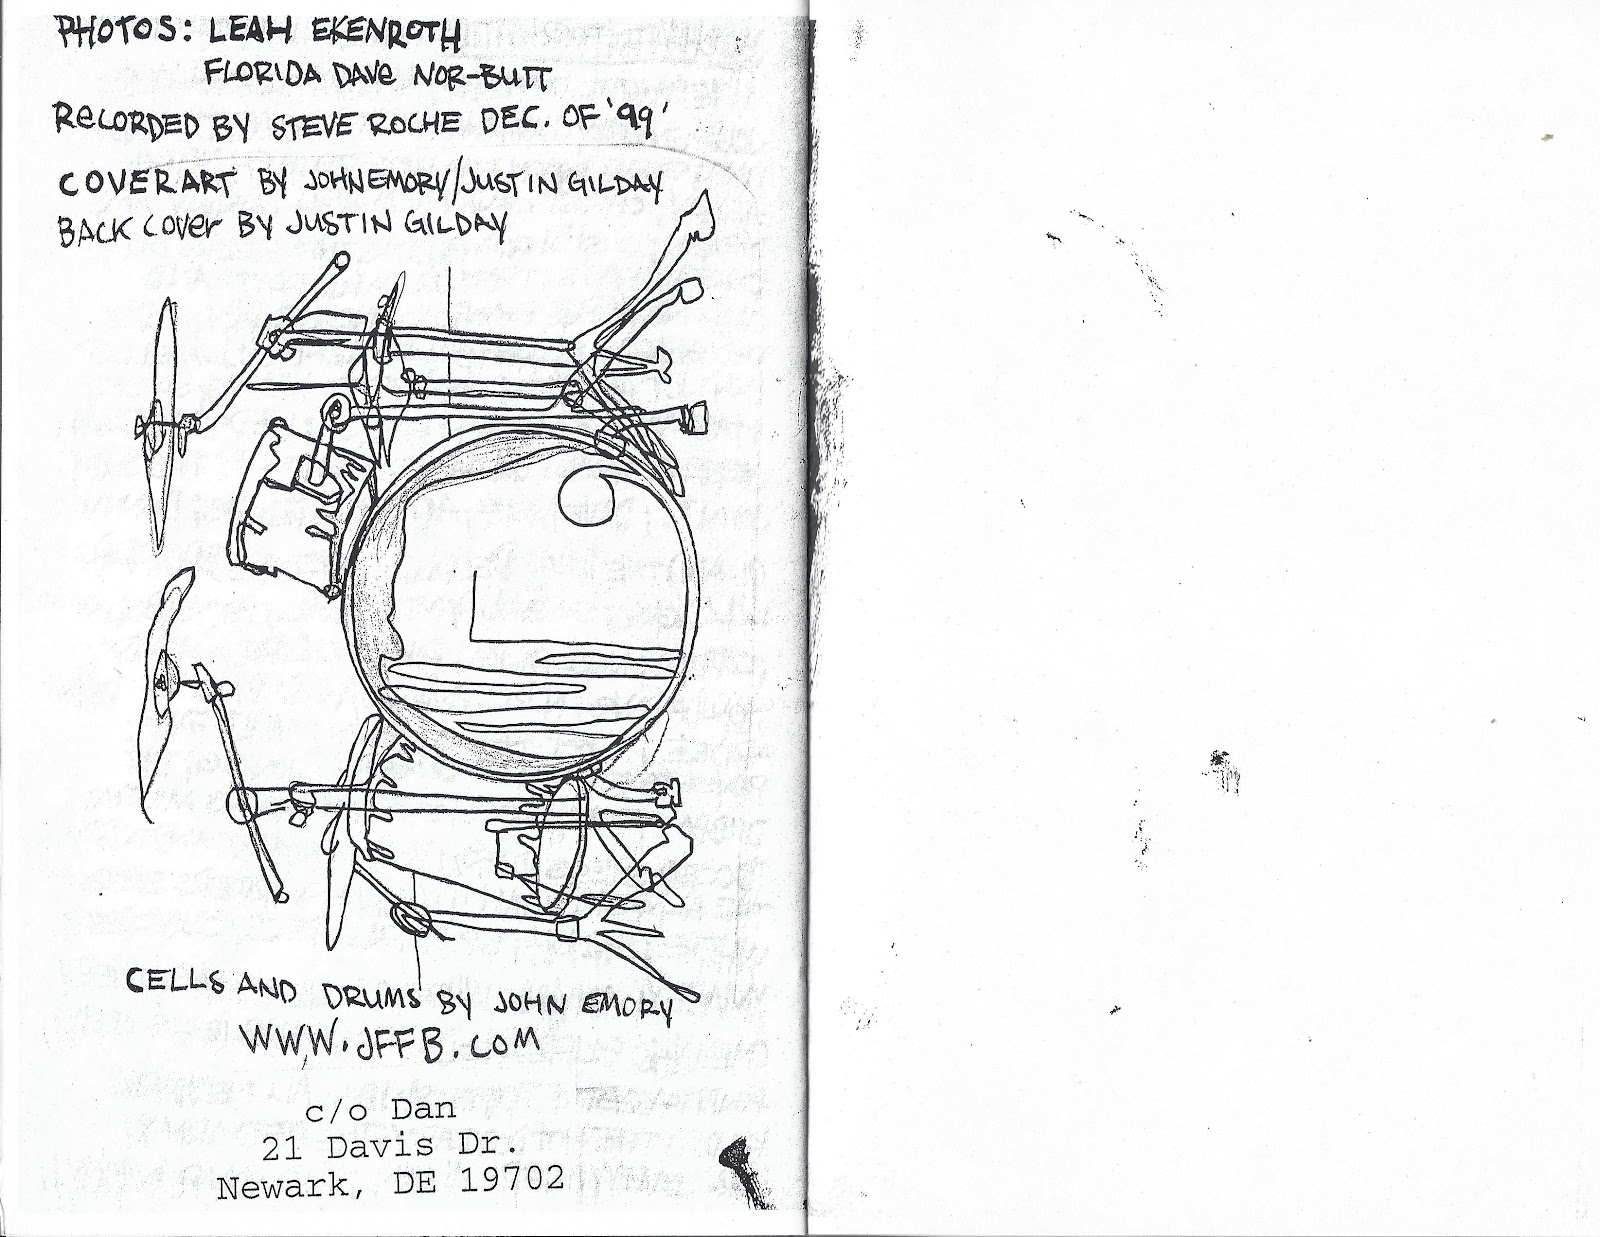 PHOTOS: LEAH EKENROTH
FLORIDA DAVE NOR-BUTT
RECORDED BY STEVE ROCHE DEC. OF '99'
COVER ART BY JOHN EMORY/JUSTIN GILDAY
BACK COVER BY JUSTIN GILDAY
CELLS AND DRUMS BY JOHN EMORY
WWW.JFFB.COM
c/o Dan
21 Davis Dr.
Newark, DE 19702